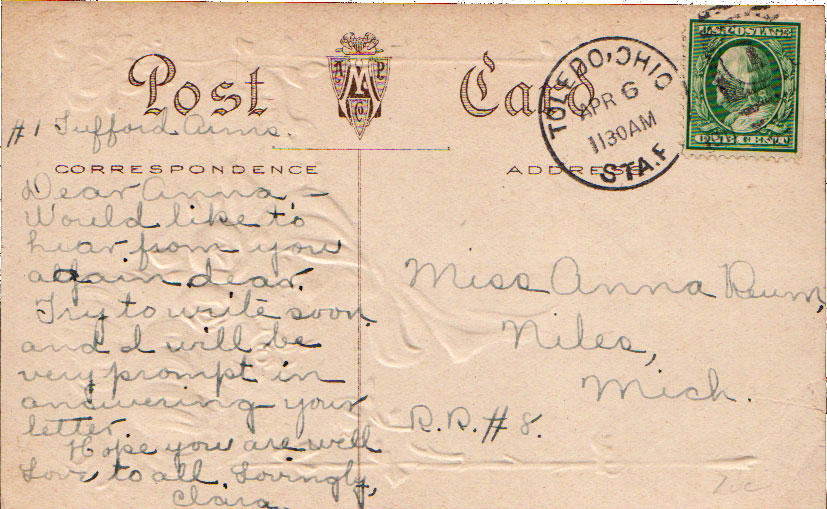 Post Card
A M P
G
TOLEDO, OHIO
APR 6
1130AM
STA.F
U.S. POSTAGE
ONE CENT
#1 Tufford Arms.
CORRESPONDENCE
ADDRESS
Dear Anna, –
Would like to
hear from you
again dear.
Try to write soon
and I will be
very prompt in
answering your
letter.
Hope you are well
Love to all. Lovingly,
Clara.
Miss Anna Reum,
Niles,
Mich.
R.R. #8.